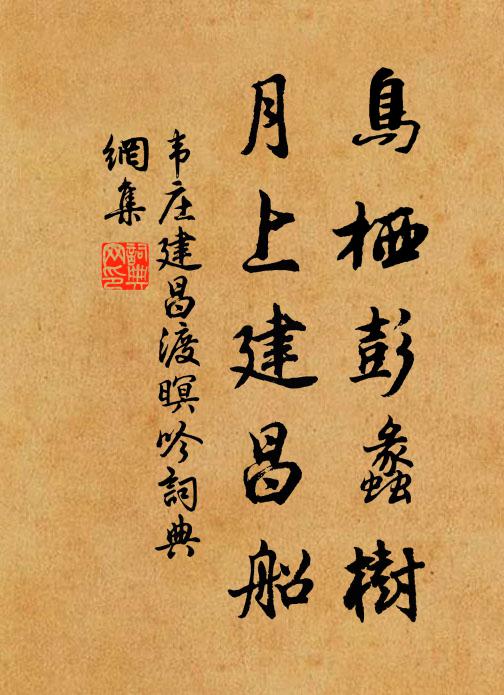 鳥栖彭蠡樹
月上建昌船
韦庄建昌渡暝吟詞典
網集
詞典
网印